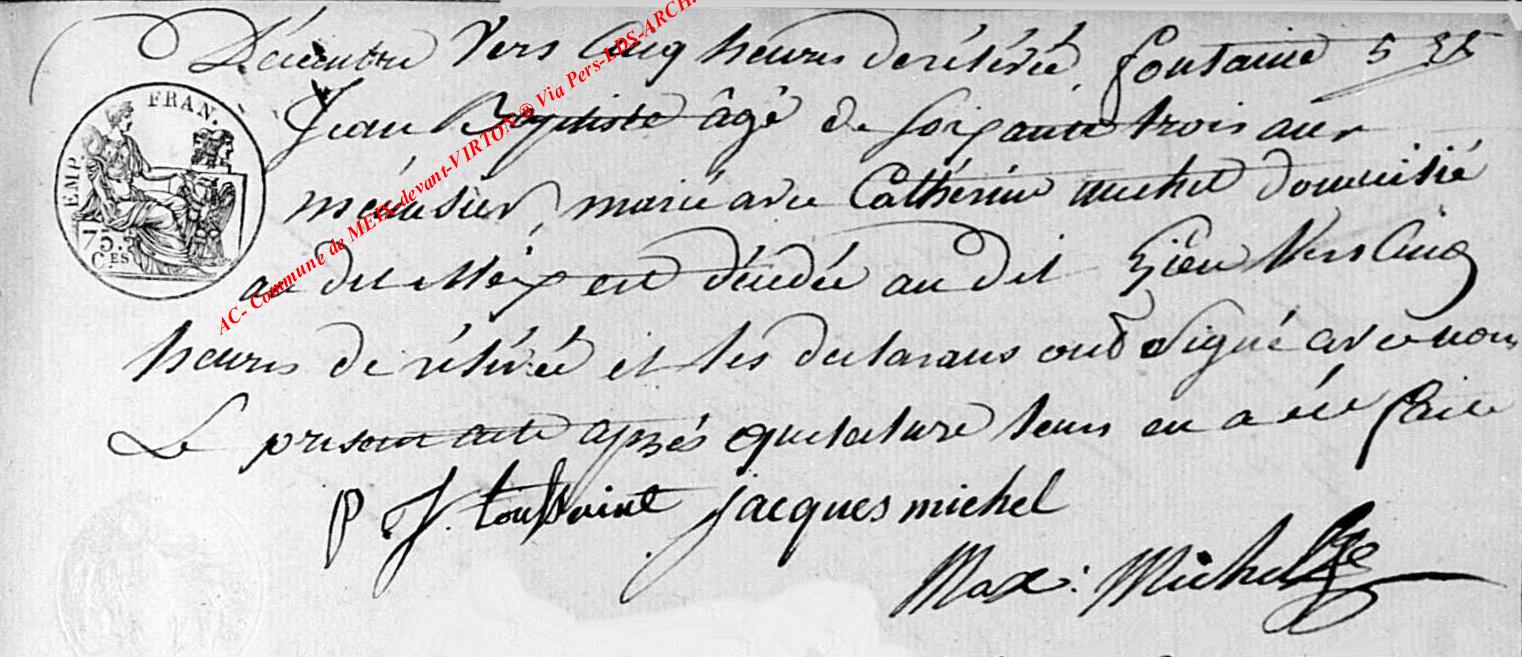 Décembre vers Cinq heures de rélévée fontaine 5
Jean Baptiste âgé de soixante trois ans
ménusier marié avec Cathérine michel domicilié
au dit Meix est décédée au dit Lieu Vers Cinq
heures de rélévée et les declarans ont Signé avec nous
Le présent acte après que lecture leurs en a été faite
p J. toussaint jacques michel
Max: Michel
EMP. FRAN.
75.
C.ES
AC- Commune de MEIX-devant-VIRTON ® Via Pers-LDS-ARCH.